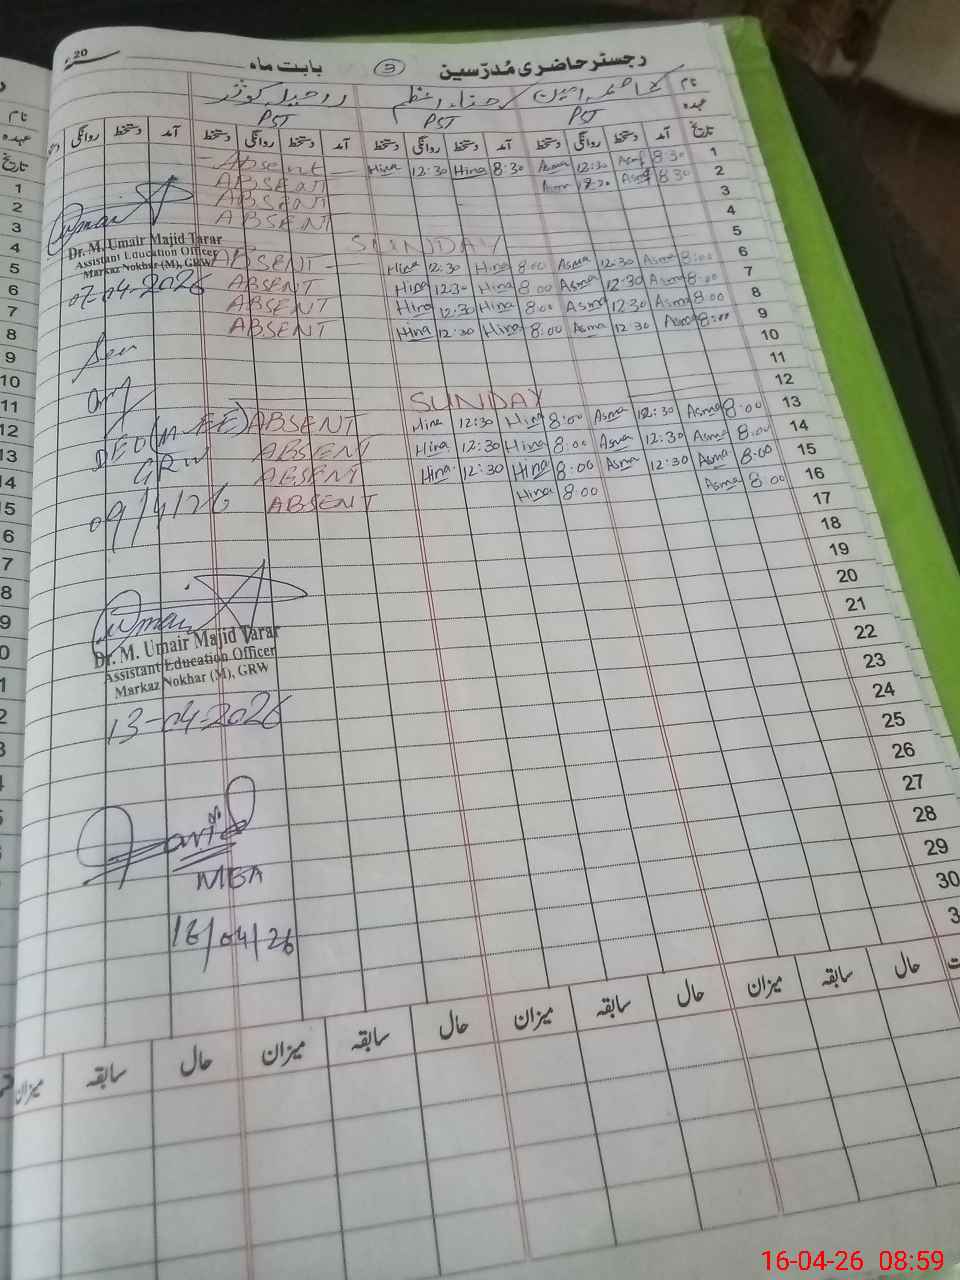 رجسٹر حاضری مُدرّسین 3 بابت ماہ 20
نام
عہدہ PST PST PST
تاریخ آمد دستخط روانگی دستخط آمد دستخط روانگی دستخط آمد دستخط روانگی دستخط
1 8:30 Asma 12:30 Asma 8:30 Hina 12:30 Hina Absent
2 8:30 Asma 12:30 Asma ABSENT
3 ABSENT
4 ABSENT
5 SUNDAY
6 8:00 Asma 12:30 Asma 8:00 Hina 12:30 Hina ABSENT
7 8:00 Asma 12:30 Asma 8:00 Hina 12:30 Hina ABSENT
8 8:00 Asma 12:30 Asma 8:00 Hina 12:30 Hina ABSENT
9 8:00 Asma 12:30 Asma 8:00 Hina 12:30 Hina ABSENT
10
11
12 SUNDAY
13 8:00 Asma 12:30 Asma 8:00 Hina 12:30 Hina ABSENT
14 8:00 Asma 12:30 Asma 8:00 Hina 12:30 Hina ABSENT
15 8:00 Asma 12:30 Asma 8:00 Hina 12:30 Hina ABSENT
16 8:00 Asma 8:00 Hina ABSENT
17
18
19
20
21
22
23
24
25
26
27
28
29
30
Dr. M. Umair Majid Tarar
Assistant Education Officer
Markaz Nokhar (M), GRW
07-04-2026
DEO (M-EE)
GRW
09/4/26
Dr. M. Umair Majid Tarar
Assistant Education Officer
Markaz Nokhar (M), GRW
13-04-2026
MEA
16/04/26
حال سابقہ میزان حال سابقہ میزان حال سابقہ میزان
نام
عہدہ
تاریخ
1
2
3
4
5
6
7
8
9
10
11
12
13
14
15
16-04-26 08:59